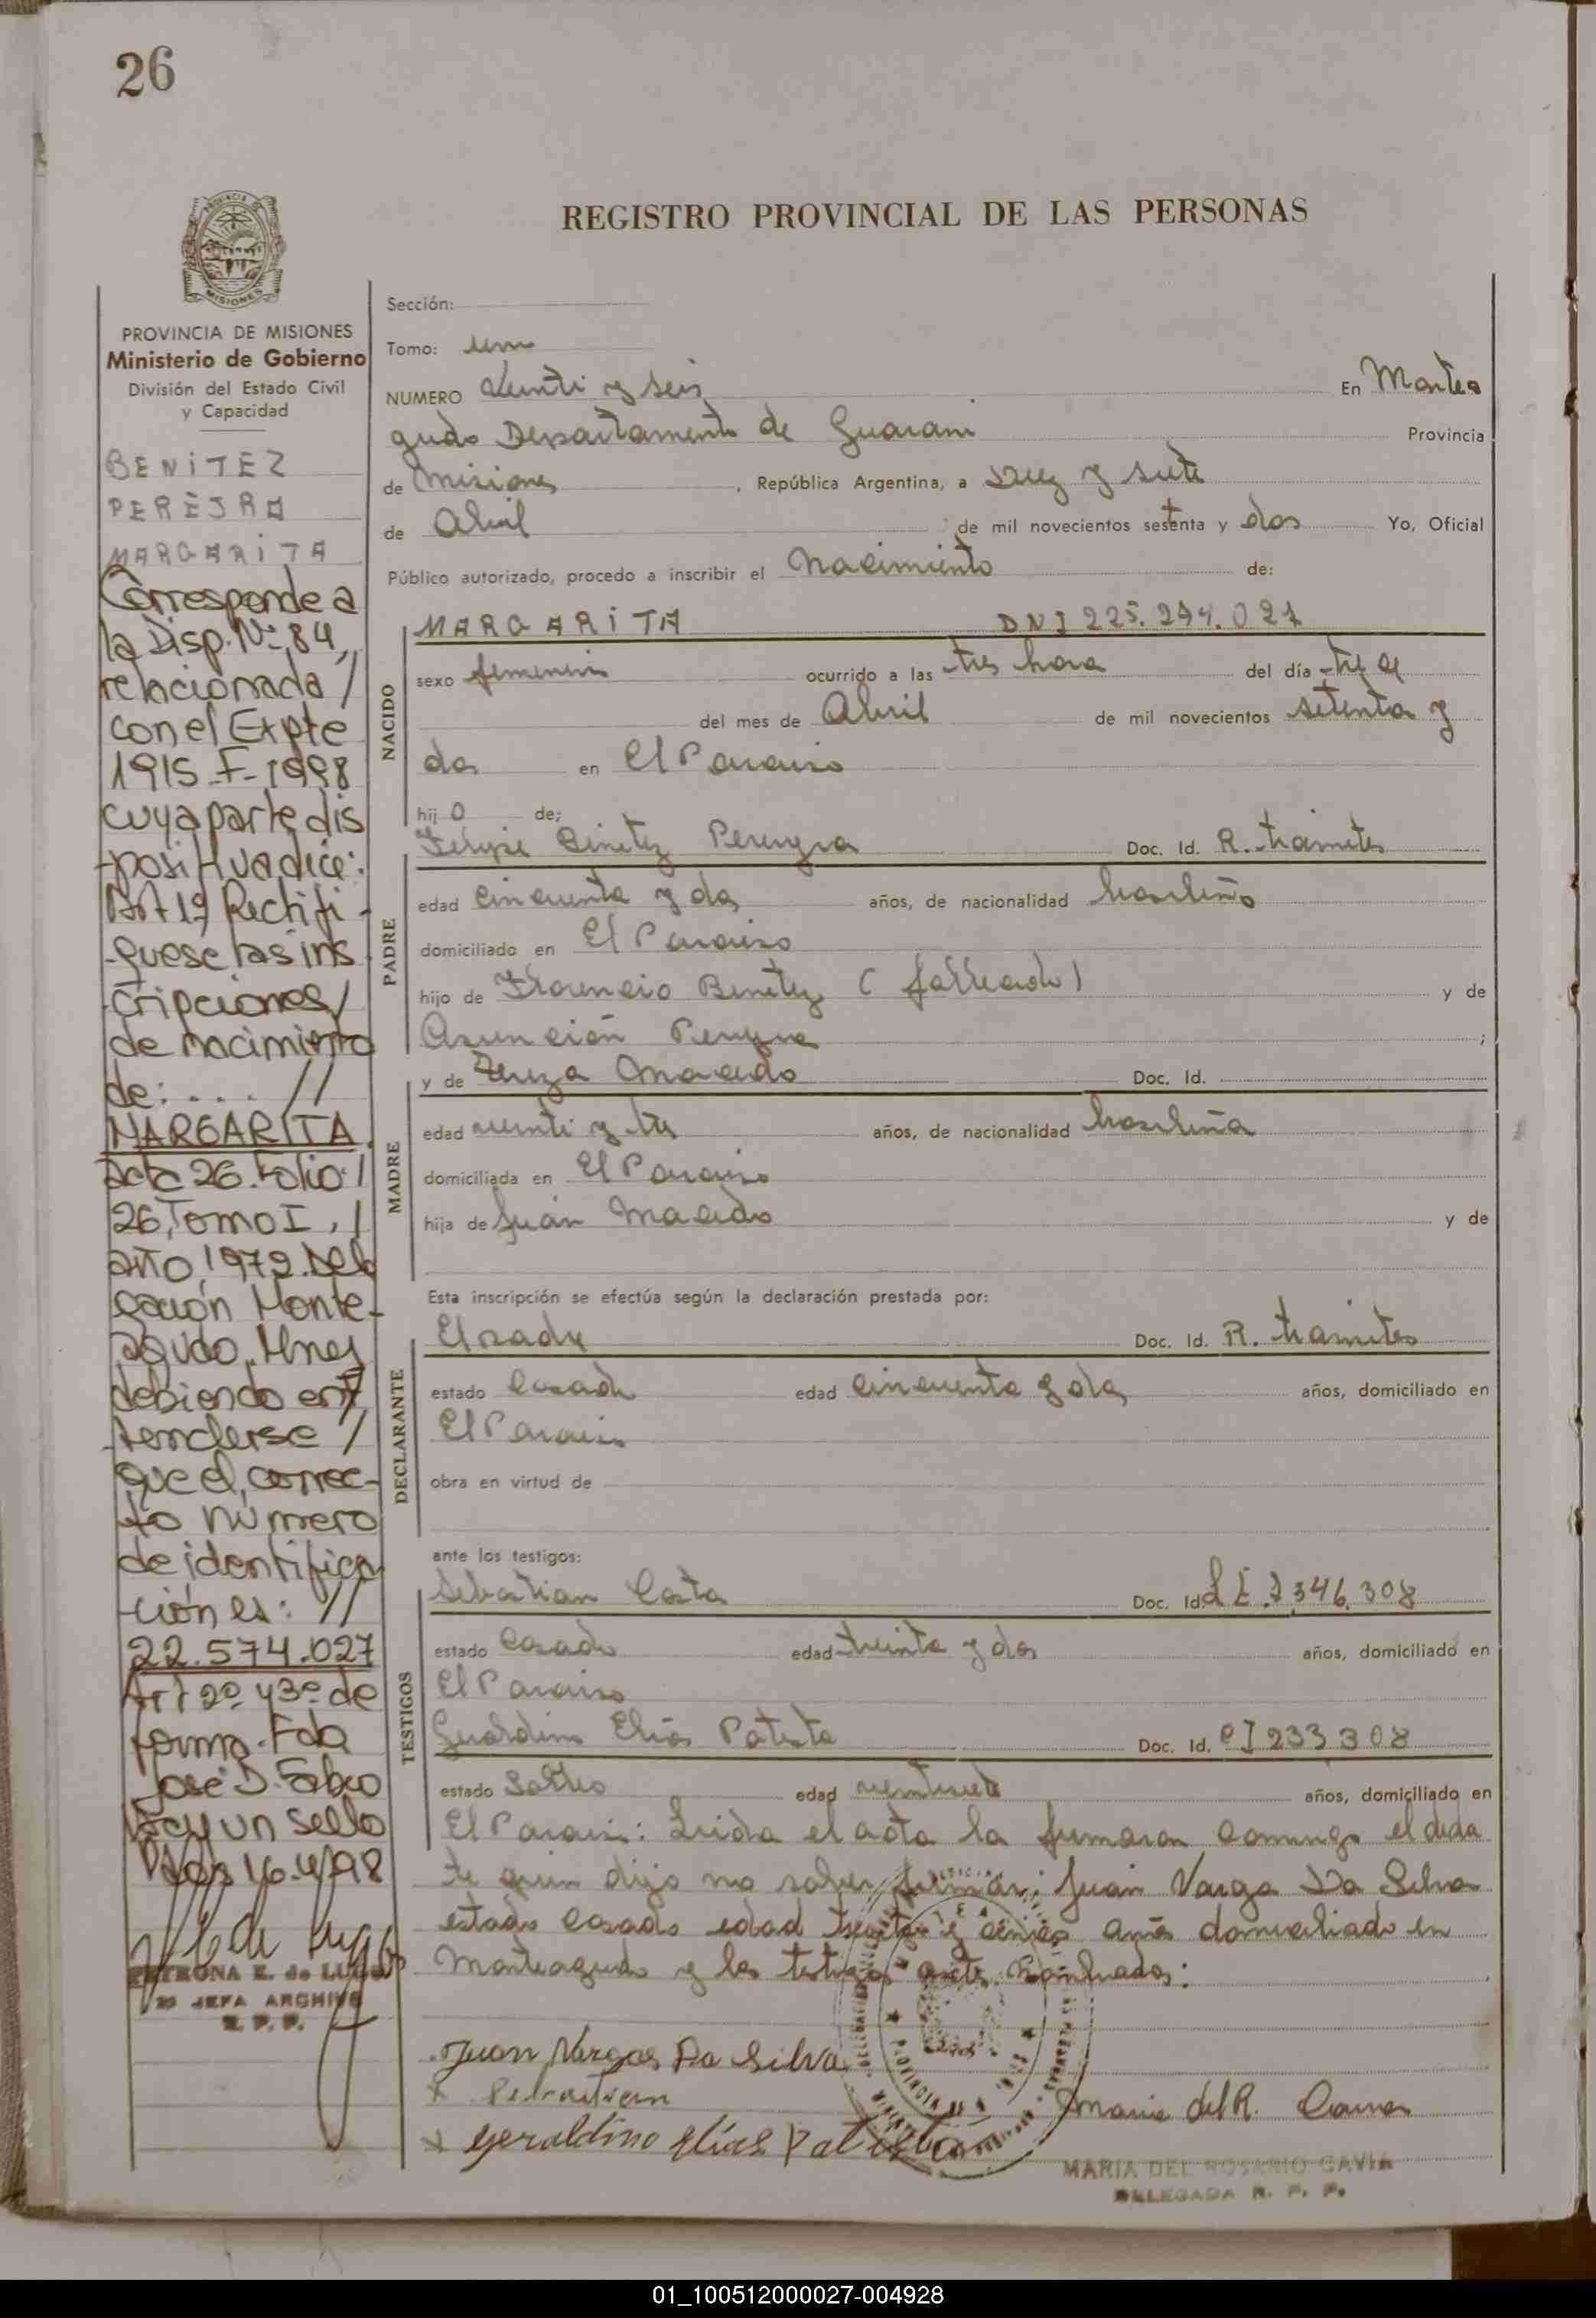 26
REGISTRO PROVINCIAL DE LAS PERSONAS
MISIONES
PROVINCIA DE MISIONES
Ministerio de Gobierno
División del Estado Civil
y Capacidad
BENITEZ
PEREJRA
MARGARITA
Corresponde a
la Disp. Nº 84,
relacionada /
con el Expte
1915-F-1998
cuya parte dis
-positiva dice:
Art 1º Rectifi-
-quese las ins
-cripciones /
de nacimiento
de: .... //
MARGARITA.
Acta 26. Folio /
26, Tomo I, /
año 1972. Dele
gación Monte-
agudo, Mnes
debiendo en/
-tenderse /
que el correc-
-to número
de identifica
-ción es: //
22.574.027
Art 2º y 3º de
forma. Fdo
José D. Fabio
Hay un sello
Pdas 16.4/98
PETRONA E. de LUGO
JEFA ARCHIVO
R. P. P.
Sección:
Tomo: uno
NUMERO Veinti y seis En Montea
gudo Departamento de Guarani Provincia
de Misiones, República Argentina, a Diez y siete
de Abril de mil novecientos sesenta y dos Yo, Oficial
Público autorizado, procedo a inscribir el Nacimiento de:
NACIDO
MARGARITA DNI 225.274.027
sexo femenin ocurrido a las tres hora del día tre ce
del mes de Abril de mil novecientos setenta y
dos en El Paraiso
hij o de:
PADRE
Felipe Benitez Pereyra Doc. Id. R. tramites
edad cincuenta y dos años, de nacionalidad brasileño
domiciliado en El Paraiso
hijo de Florencio Benitez (fallecido) y de
Asunción Pereyra ;
MADRE
y de Tereza Macedo Doc. Id.
edad veinti y tres años, de nacionalidad brasileña
domiciliada en El Paraiso
hija de Juan Macedo y de
Esta inscripción se efectúa según la declaración prestada por:
DECLARANTE
El padre Doc. Id. R. tramites
estado Casado edad cincuenta y dos años, domiciliado en
El Paraiso
obra en virtud de
ante los testigos:
TESTIGOS
Sebastian Costa Doc. Id. L E 7.346.308
estado Casado edad treinta y dos años, domiciliado en
El Paraiso
Gualdino Elias Patista Doc. Id. CI 233308
estado Soltero edad veintisiete años, domiciliado en
El Paraiso: Leida el acta la firmaron conmigo el decla
te quien dijo no saber firmar: Juan Varga Da Silva
estado Casado edad treinta y cinco años domiciliado en
Monteagudo y los testigos ante nombrados:
Juan Vargas Da Silva
x Sebastian
x Geraldino Elias Patista
Maria del R. Gavia
MARIA DEL ROSARIO GAVIA
DELEGADA R. P. P.
01_100512000027-004928